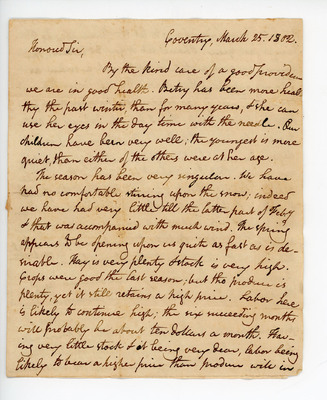 Coventry, March 25. 1802.
Honored Sir,
By the kind care of a good providence
we are in good health. Betsy has been more heal
thy the past winter, than for many years, & she can
use her eyes in the day time with the needle. Our
children have been very well; the youngest is more
quiet, than either of the others were at her age.
The season has been very singular. We have
had no comfortable stirring upon the snow; indeed
we have had very little till the latter part of Feby
& that was accompanied with much wind. The spring
appears to be opening upon us quite as fast as is de-
sirable. Hay is very plenty & stock is very high.
Crops were good the last season; but tho produce is
plenty, yet it still retains a high price. Labor here
is likely to continue high; the six succeeding months
will probably be about ten dollars a month. Hav-
ing very little stock & it being very dear, labor being
likely to bear a higher price than produce will in